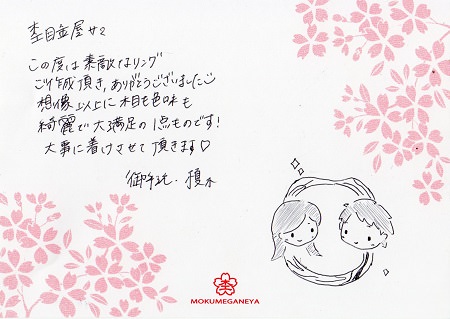 杢目金屋サマ
この度は素敵なリング
ご作成頂き、ありがとうございました
想像以上に木目も色味も
綺麗で大満足の1点ものです!
大事に着けさせて頂きます♡
御手洗・榎木
MOKUMEGANEYA